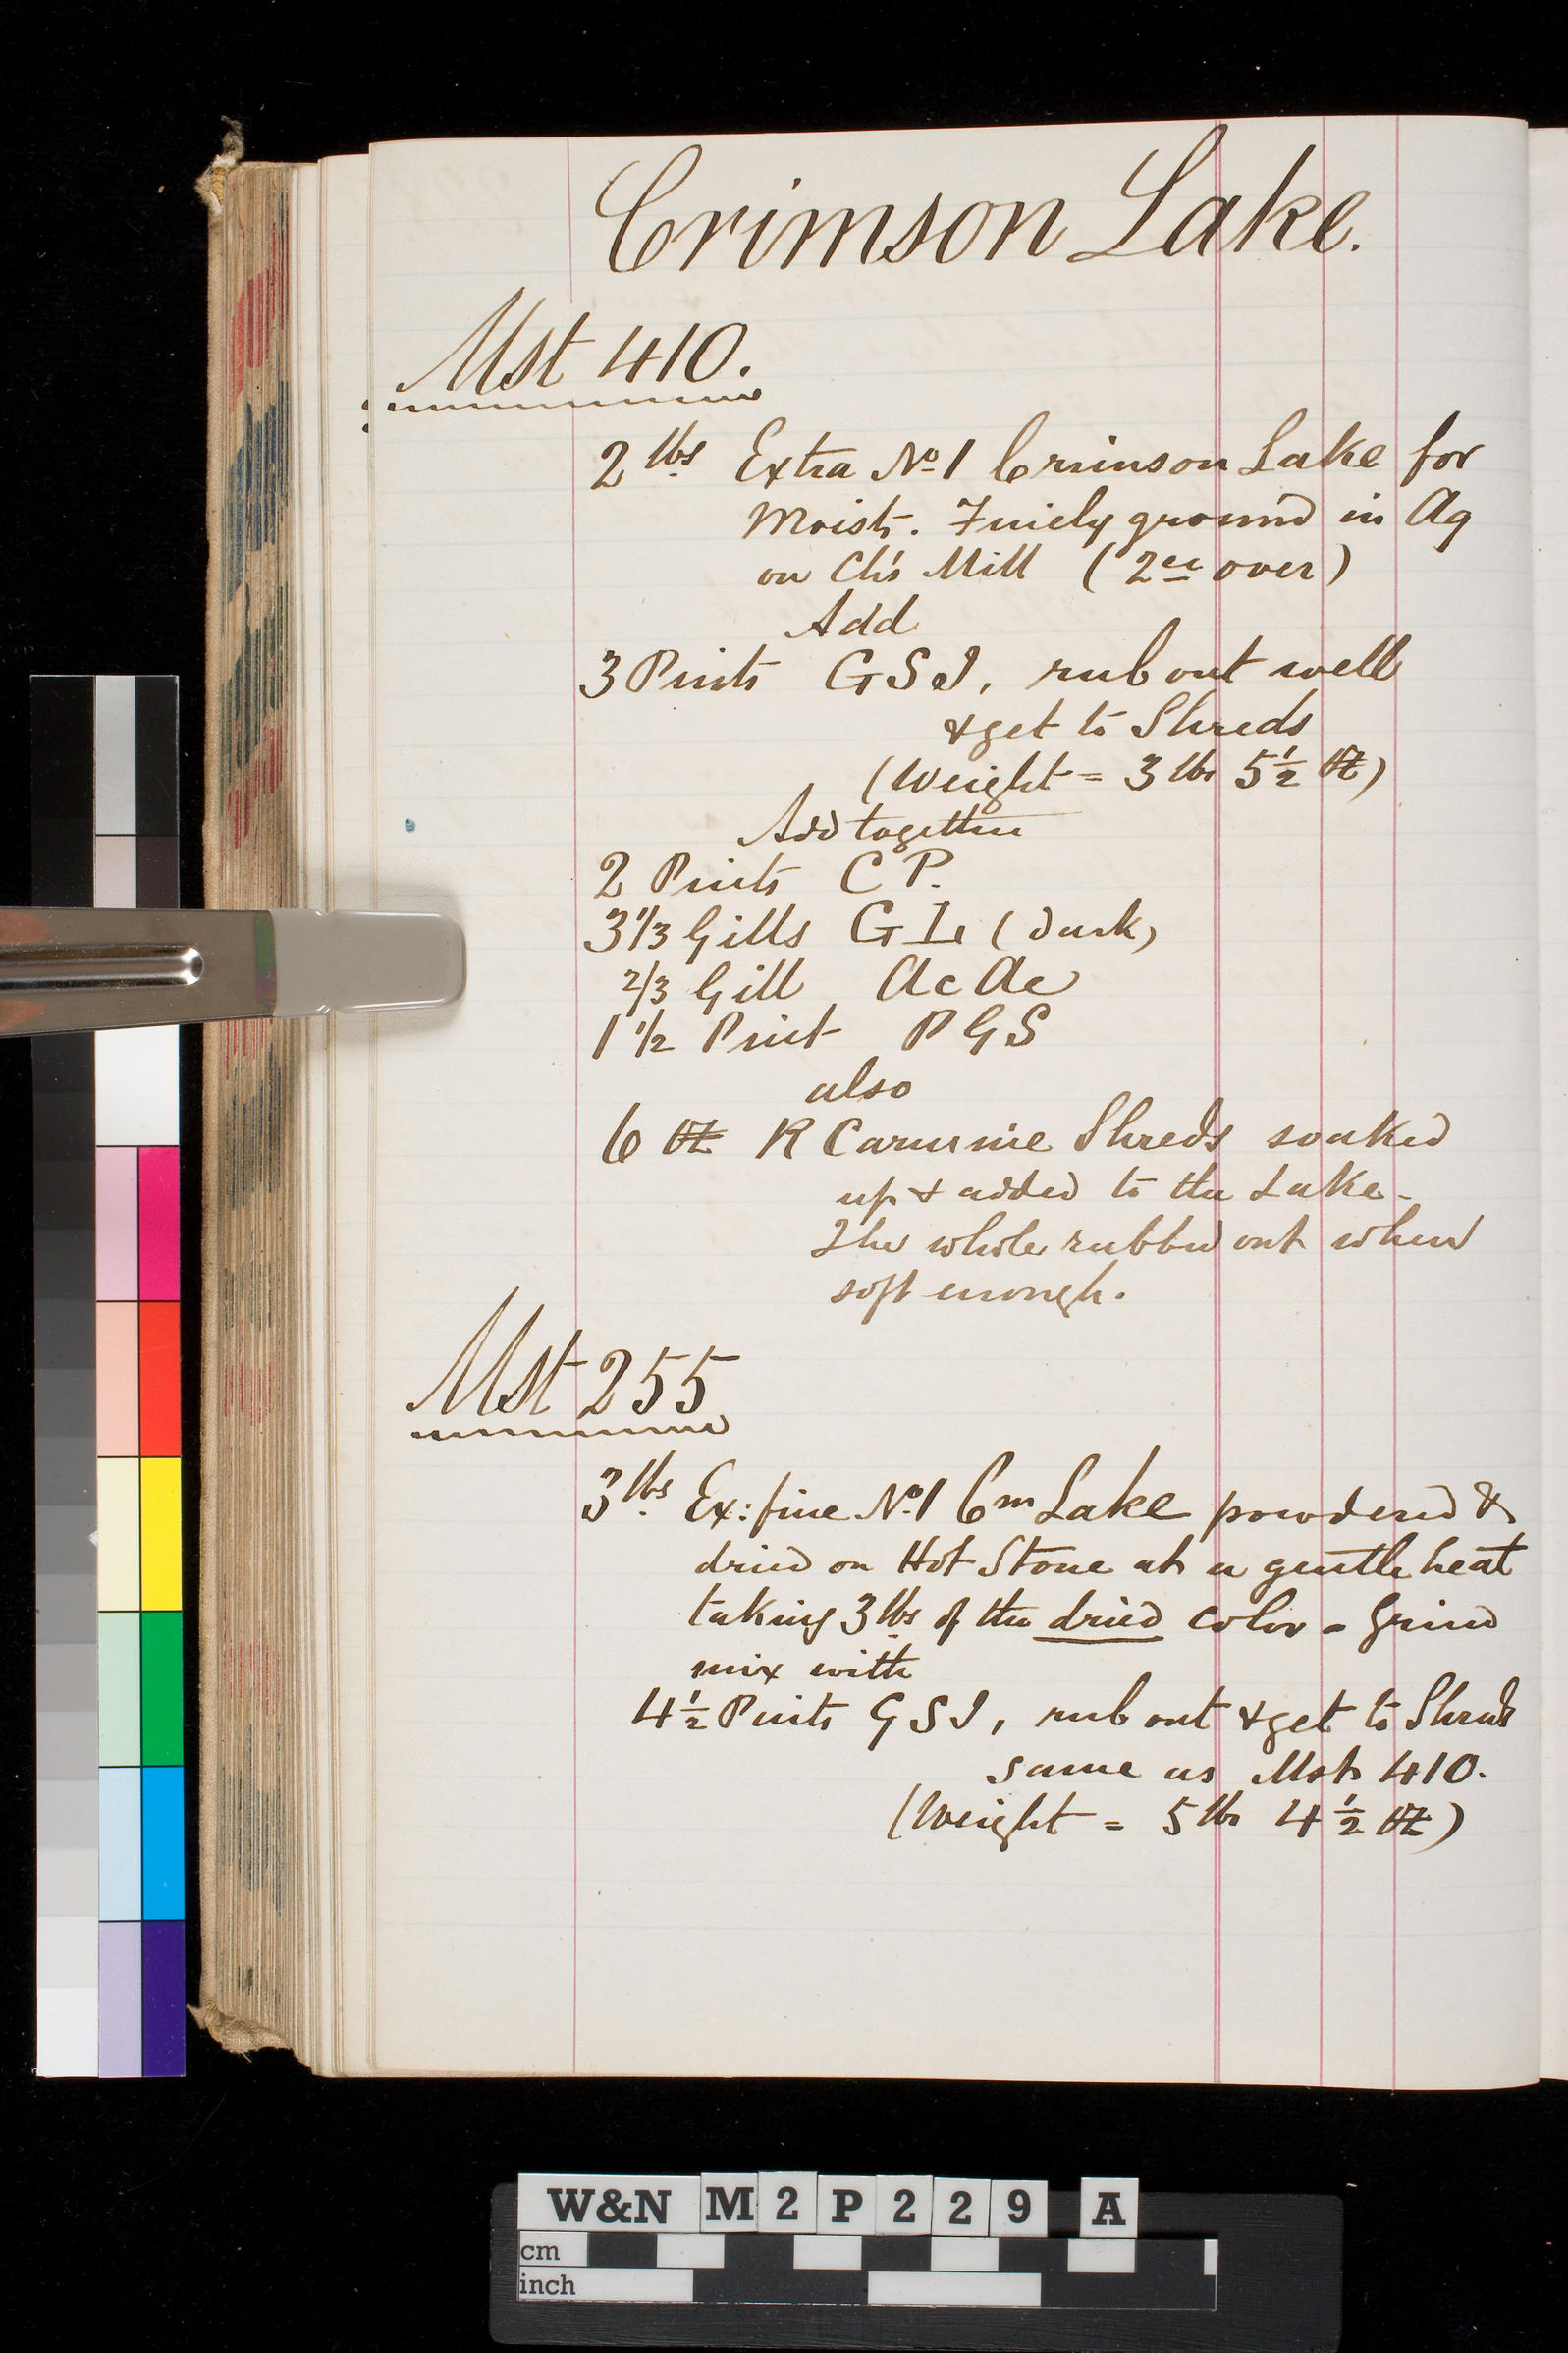 Crimson Lake.
Mst 410.
2 lbs Extra No 1 Crimson Lake for
Moist. Finely ground in Aq
on Ch's Mill (2ce over)
Add
3 Pints GSI, rub out well
& get to Shreds
(Weight = 3 lbs 5 1/2 oz)
Add together
2 Pints CP.
3 1/3 Gills GL (dark)
2/3 Gill Ac Ac
1 1/2 Pint PGS
also
6 oz R Carmine Shreds soaked
up & added to the Lake -
The whole rubbed out when
soft enough.
Mst 255
3 lbs Ex: fine No. 1 Cm Lake powdered &
dried on Hot Stone at a gentle heat
taking 3 lbs of the dried color - Grind
mix with
4 1/2 Pints GSI, rub out & get to Shreds
same as Mst 410.
(Weight = 5 lbs 4 1/2 oz)
W&N M2P229 A
cm
inch